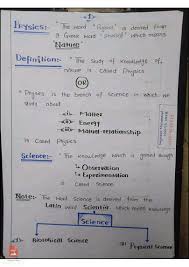 ①
Physics:- The word "Physics" is derived from
a Greek word "Physics" which means
"Nature"
Definition:- The study of knowledge of
nature is Called Physics
OR
"Physics is the branch of Science in which we
study about
Matter
Energy
Mutual-relationship
is Called Physics
Science:- The Knowledge which is gained through
Observation
Experimentation
is Called Science
Note:- The Word Science is derived from the
Latin word Scientia, which means knowledge
Science
Biological Science
Physical Science